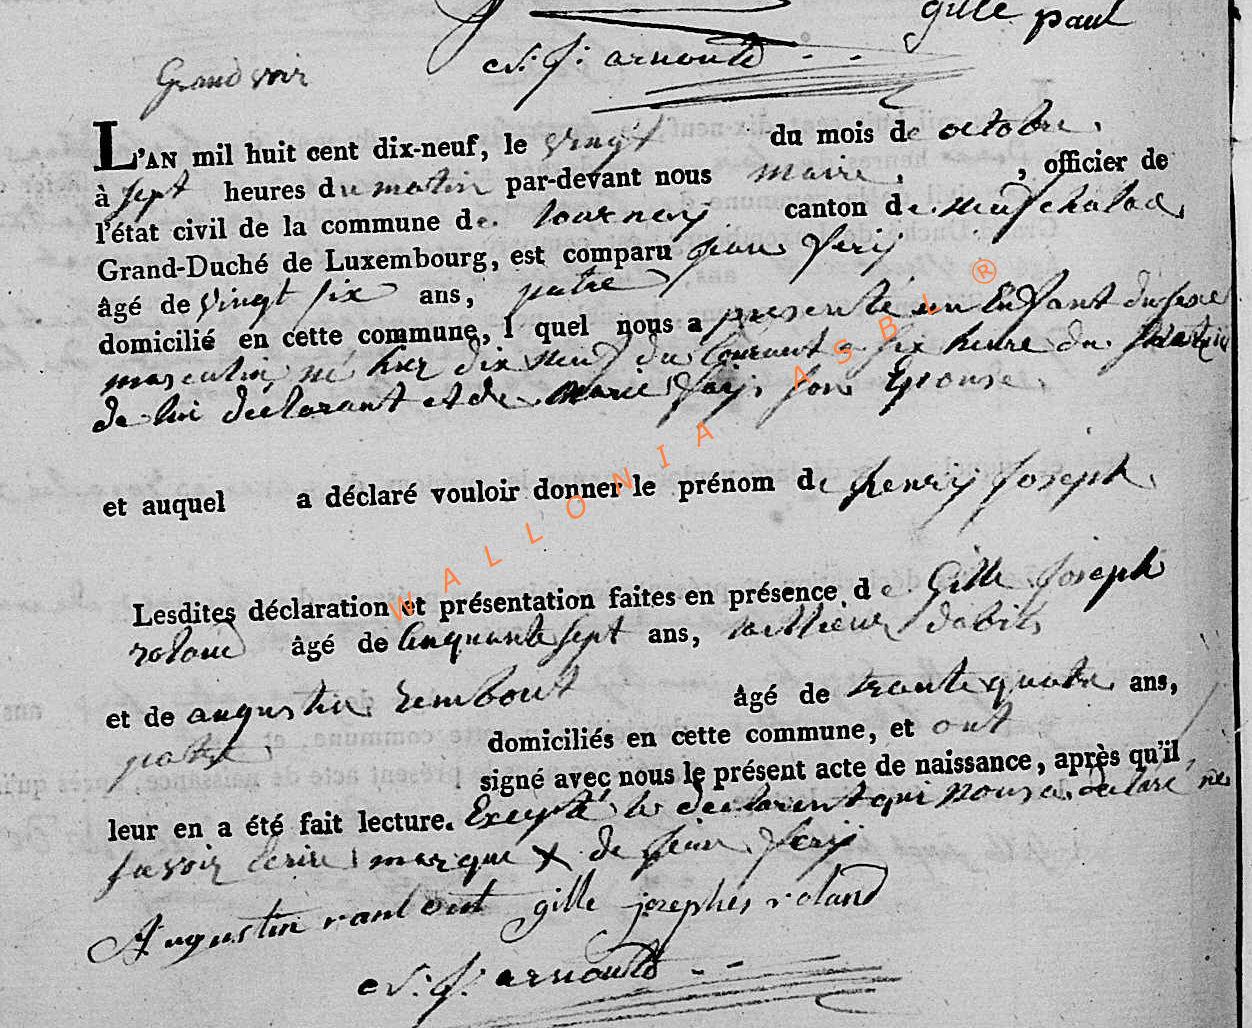 gille paul
N: J: arnould
Grandvoir
L'AN mil huit cent dix-neuf, le vingt du mois de octobre.
à sept heures du matin par-devant nous maire, , officier de
l'état civil de la commune de tournay canton de neufchateau
Grand-Duché de Luxembourg, est comparu jean
âgé de vingt six ans, patre
domicilié en cette commune, l quel nous a presenté un Enfant du sexe
masculin né hier dix neuf du Courant a six heure du matin
de lui déclarant et de marie son Epouse.
et auquel a déclaré vouloir donner le prénom de henry joseph.
Lesdites déclaration et présentation faites en présence de Gille joseph
roland âgé de Cinquante sept ans, dabits
et de augustin rembout âgé de trante quatre ans,
patre domiciliés en cette commune, et ont
signé avec nous le présent acte de naissance, après qu'il
leur en a été fait lecture. Excepté le declarent qui nous a declaré ne
savoir Ecrire marque X de jean
Augustin gille josephes roland
N: J: arnould
WALLONIA ASBL ®